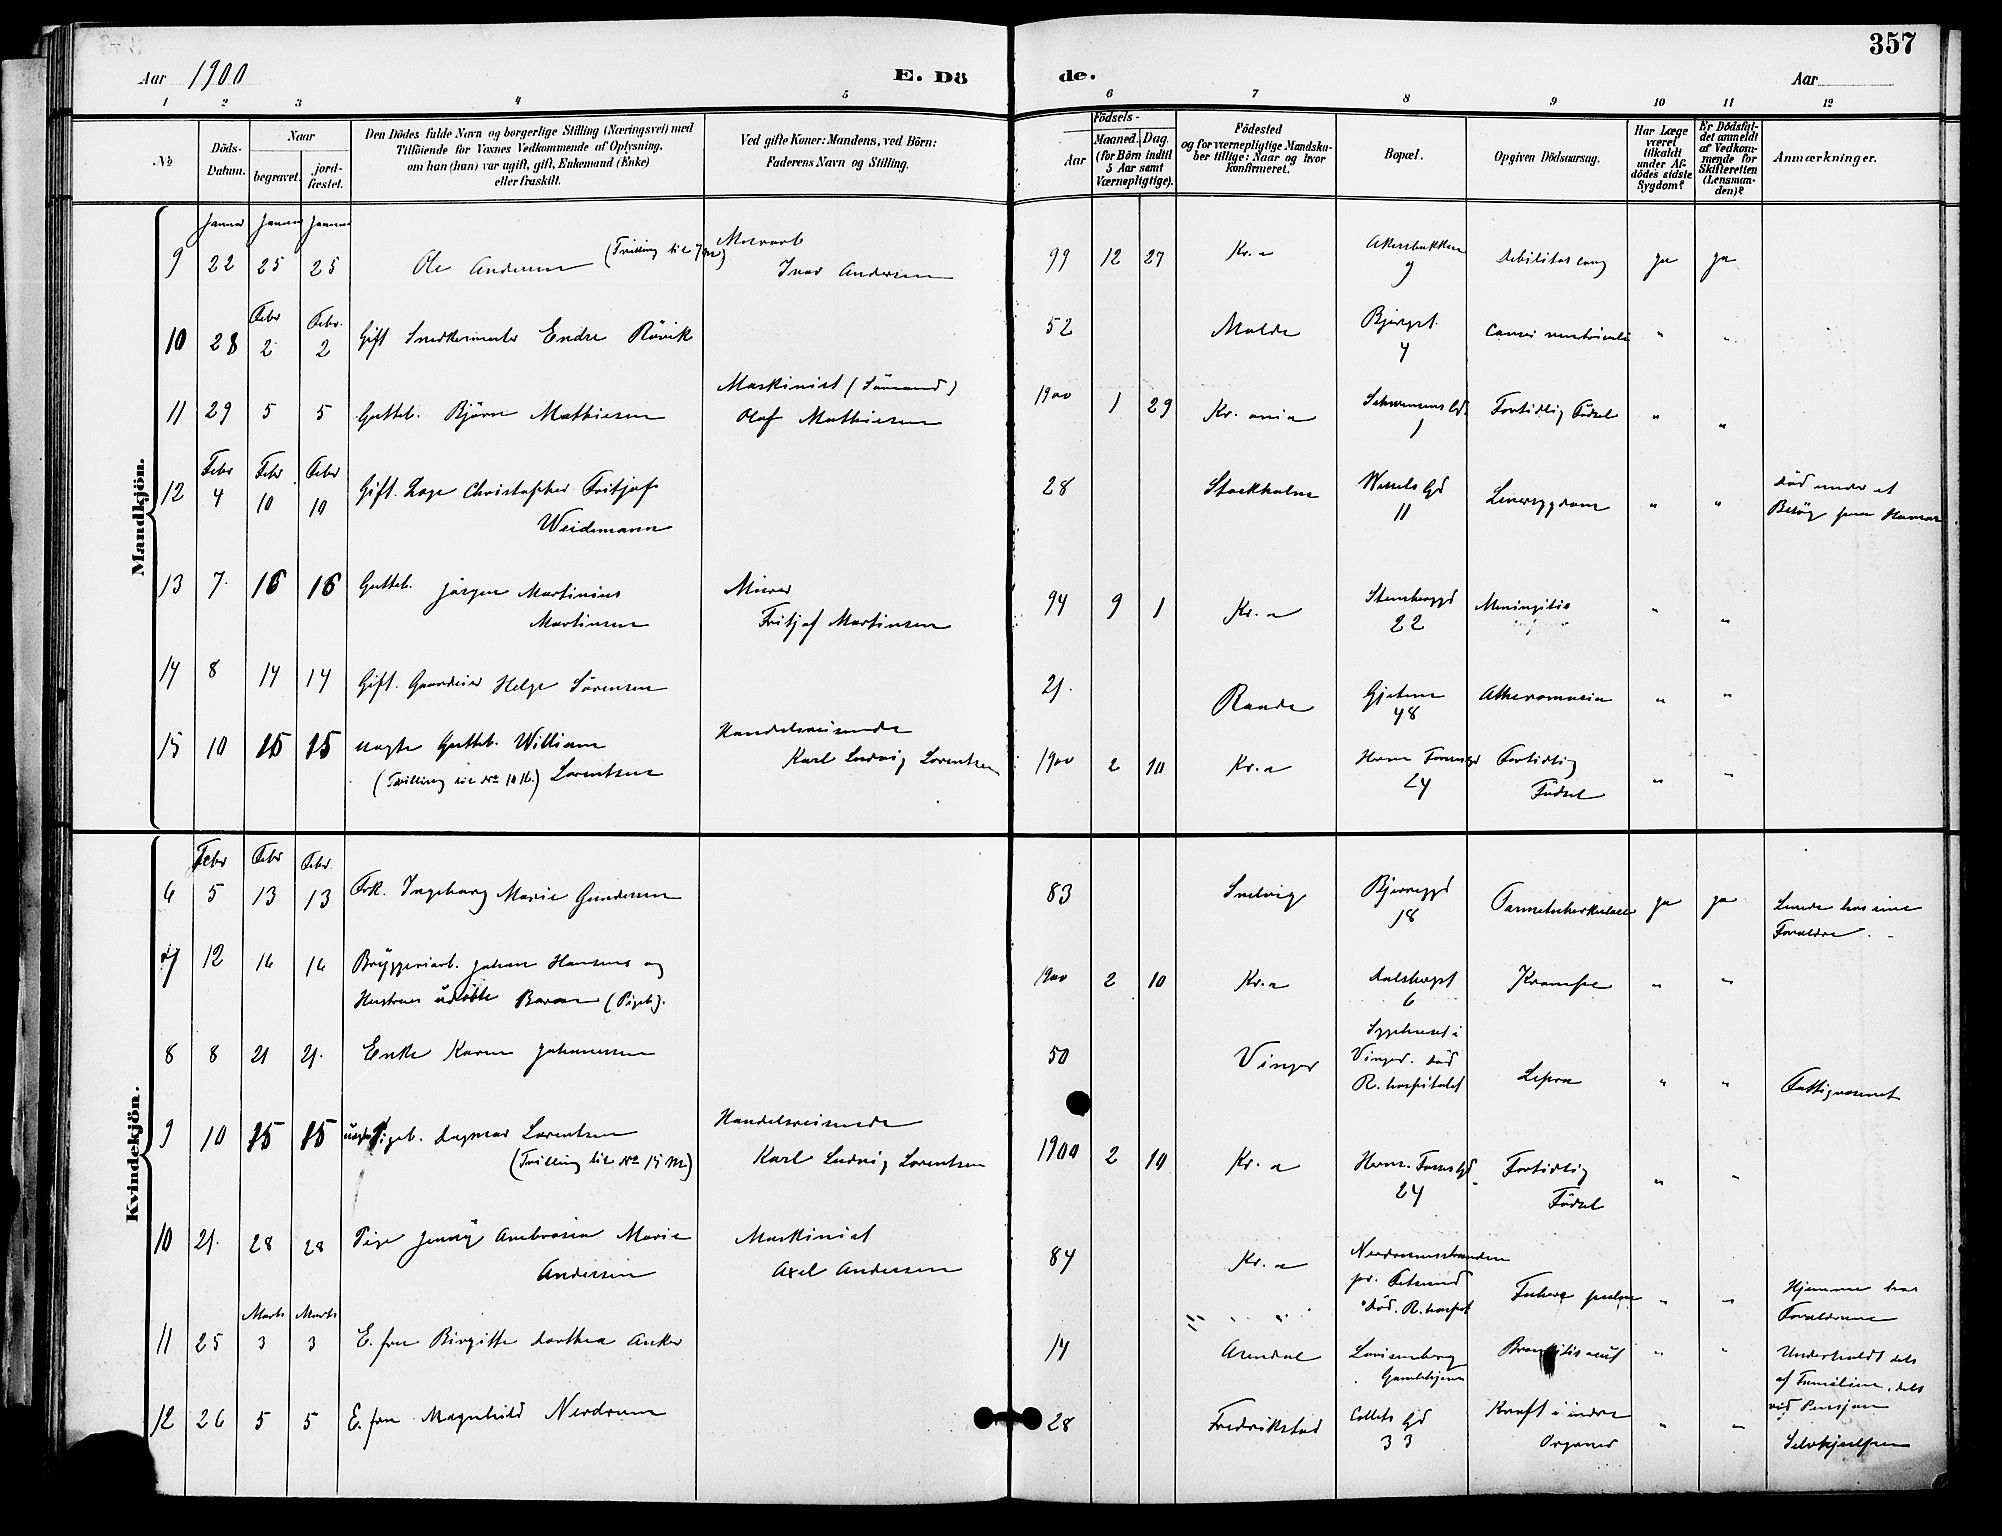 357
Aar 1900
E. Dö
de.
Aar
1 2 3 4 5 6 7 8 9 10 11 12
№
Döds-
Datum.
Naar
begravet.
jord-
fæstet.
Den Dödes fulde Navn og borgerlige Stilling (Næringsvei) med
Tilföiende for Voxnes Vedkommende af Oplysning,
om han (hun) var ugift, gift, Enkemand (Enke)
eller fraskilt.
Ved gifte Koner: Mandens, ved Börn:
Faderens Navn og Stilling.
Födsels-
Aar
Maaned. Dag.
(for Börn indtil
5 Aar samt
Værnepligtige).
Födested
og for værnepligtige Mandskaber tillige: Naar og hvor
konfirmeret.
Bopæl.
Opgiven Dödsaarsag.
Har Læge
været
tilkaldt
under Af-
dödes sidste
Sygdom?
Er Dödsfal-
det anmeldt
af Vedkom-
mende for
Skifteretten
(Lensman-
den)?
Anmærkninger.
Mandkjön.
Januar Januar Januar
9 22 25 25 Ole Andersen (Tvilling til 7)
Murarb
Ivar Andersen
99 12 27 Kr.a Akersbakken
9
Debilitas cong ja ja
Febr Febr.
10 28 2 2 Gift Snedkermester Endre Rövik
52 Molde Bjergst.
4
Cancer ventriculi " "
11 29 5 5 Gutteb. Björn Mathiesen
Maskinist (Sömand)
Olaf Mathiesen
1900 1 29 Kr. ania Schwensens Gd.
1
Fortidlig Födsel " "
Febr Febr Febr
12 4 10 10 Gift. Læge Christopher Fritjof
Weidemann
28 Stockholm Wessels Gd
11
Leversygdom " "
död under et
Besög fra Hamar
13 7. 16 16 Gutteb. Jörgen Martinius
Martinsen
Murer
Fritjof Martinsen
94 9 1 Kr. a Stensberggd
22
Meningitis " "
14 8 14 14 Gift. Gaardeier Helge Sörensen
21. Raade Gjetem
48
Atheromasia " "
15 10 15 15 uægte Gutteb. William
(Tvilling til № 10 K.) Lorentsen
Handelsreisende
Karl Ludvig Lorentsen
1900 2 10 Kr.a Herm Fossgd
24
Fortidlig
Födsel
" "
Kvindekjön.
Febr Febr Febr.
6 5 13 13 Frk. Ingeborg Marie Gundersen
83 Svelvig Bjerreggd
18
Tarmetuberkulose ja ja
Levede hos sine
Forældre.
7 12 16 16 Bryggeriarb. Johan Hansens og
Hustrues udöbte Barn (Pigeb).
1900 2 10 Kr.a Dalsbergst
6
Krampe " "
8 8 21 21. Enke Karen Johannessen
50 Vinger Sygehuset i
Vinger. död
R. hospitalet
Lepra " "
Fattigvæsenet
9 10 15 15 uægte Pigeb. Dagmar Lorentsen
(Tvilling til № 15 M)
Handelsreisende
Karl Ludvig Lorentsen
1900 2 10 Kr. a Herm. Foss Gd
24
Fortidlig
Födsel
" "
10 21. 28 28 Pige Jenny Ambrosia Marie
Andersen
Maskinist
Axel Andersen
84 Kr. a
pr. Fetsund
död. R. hospit
Tuberc pulm " "
Hjemme hos
Forældrene
Marts Marts
11 25 3 3 E. fru Birgitte Dorthea Anker
14 Arendal Lovisenberg
Gamlehjem
Bronchitis acut " "
Underholdt dels
af Familien, dels
ved Pension
12 26 5 5 E. fru Magnhild Nerdrum
28 Fredrikstad Collets Gd
33
Kræft i indre
Organer
" "
Selvhjulpen